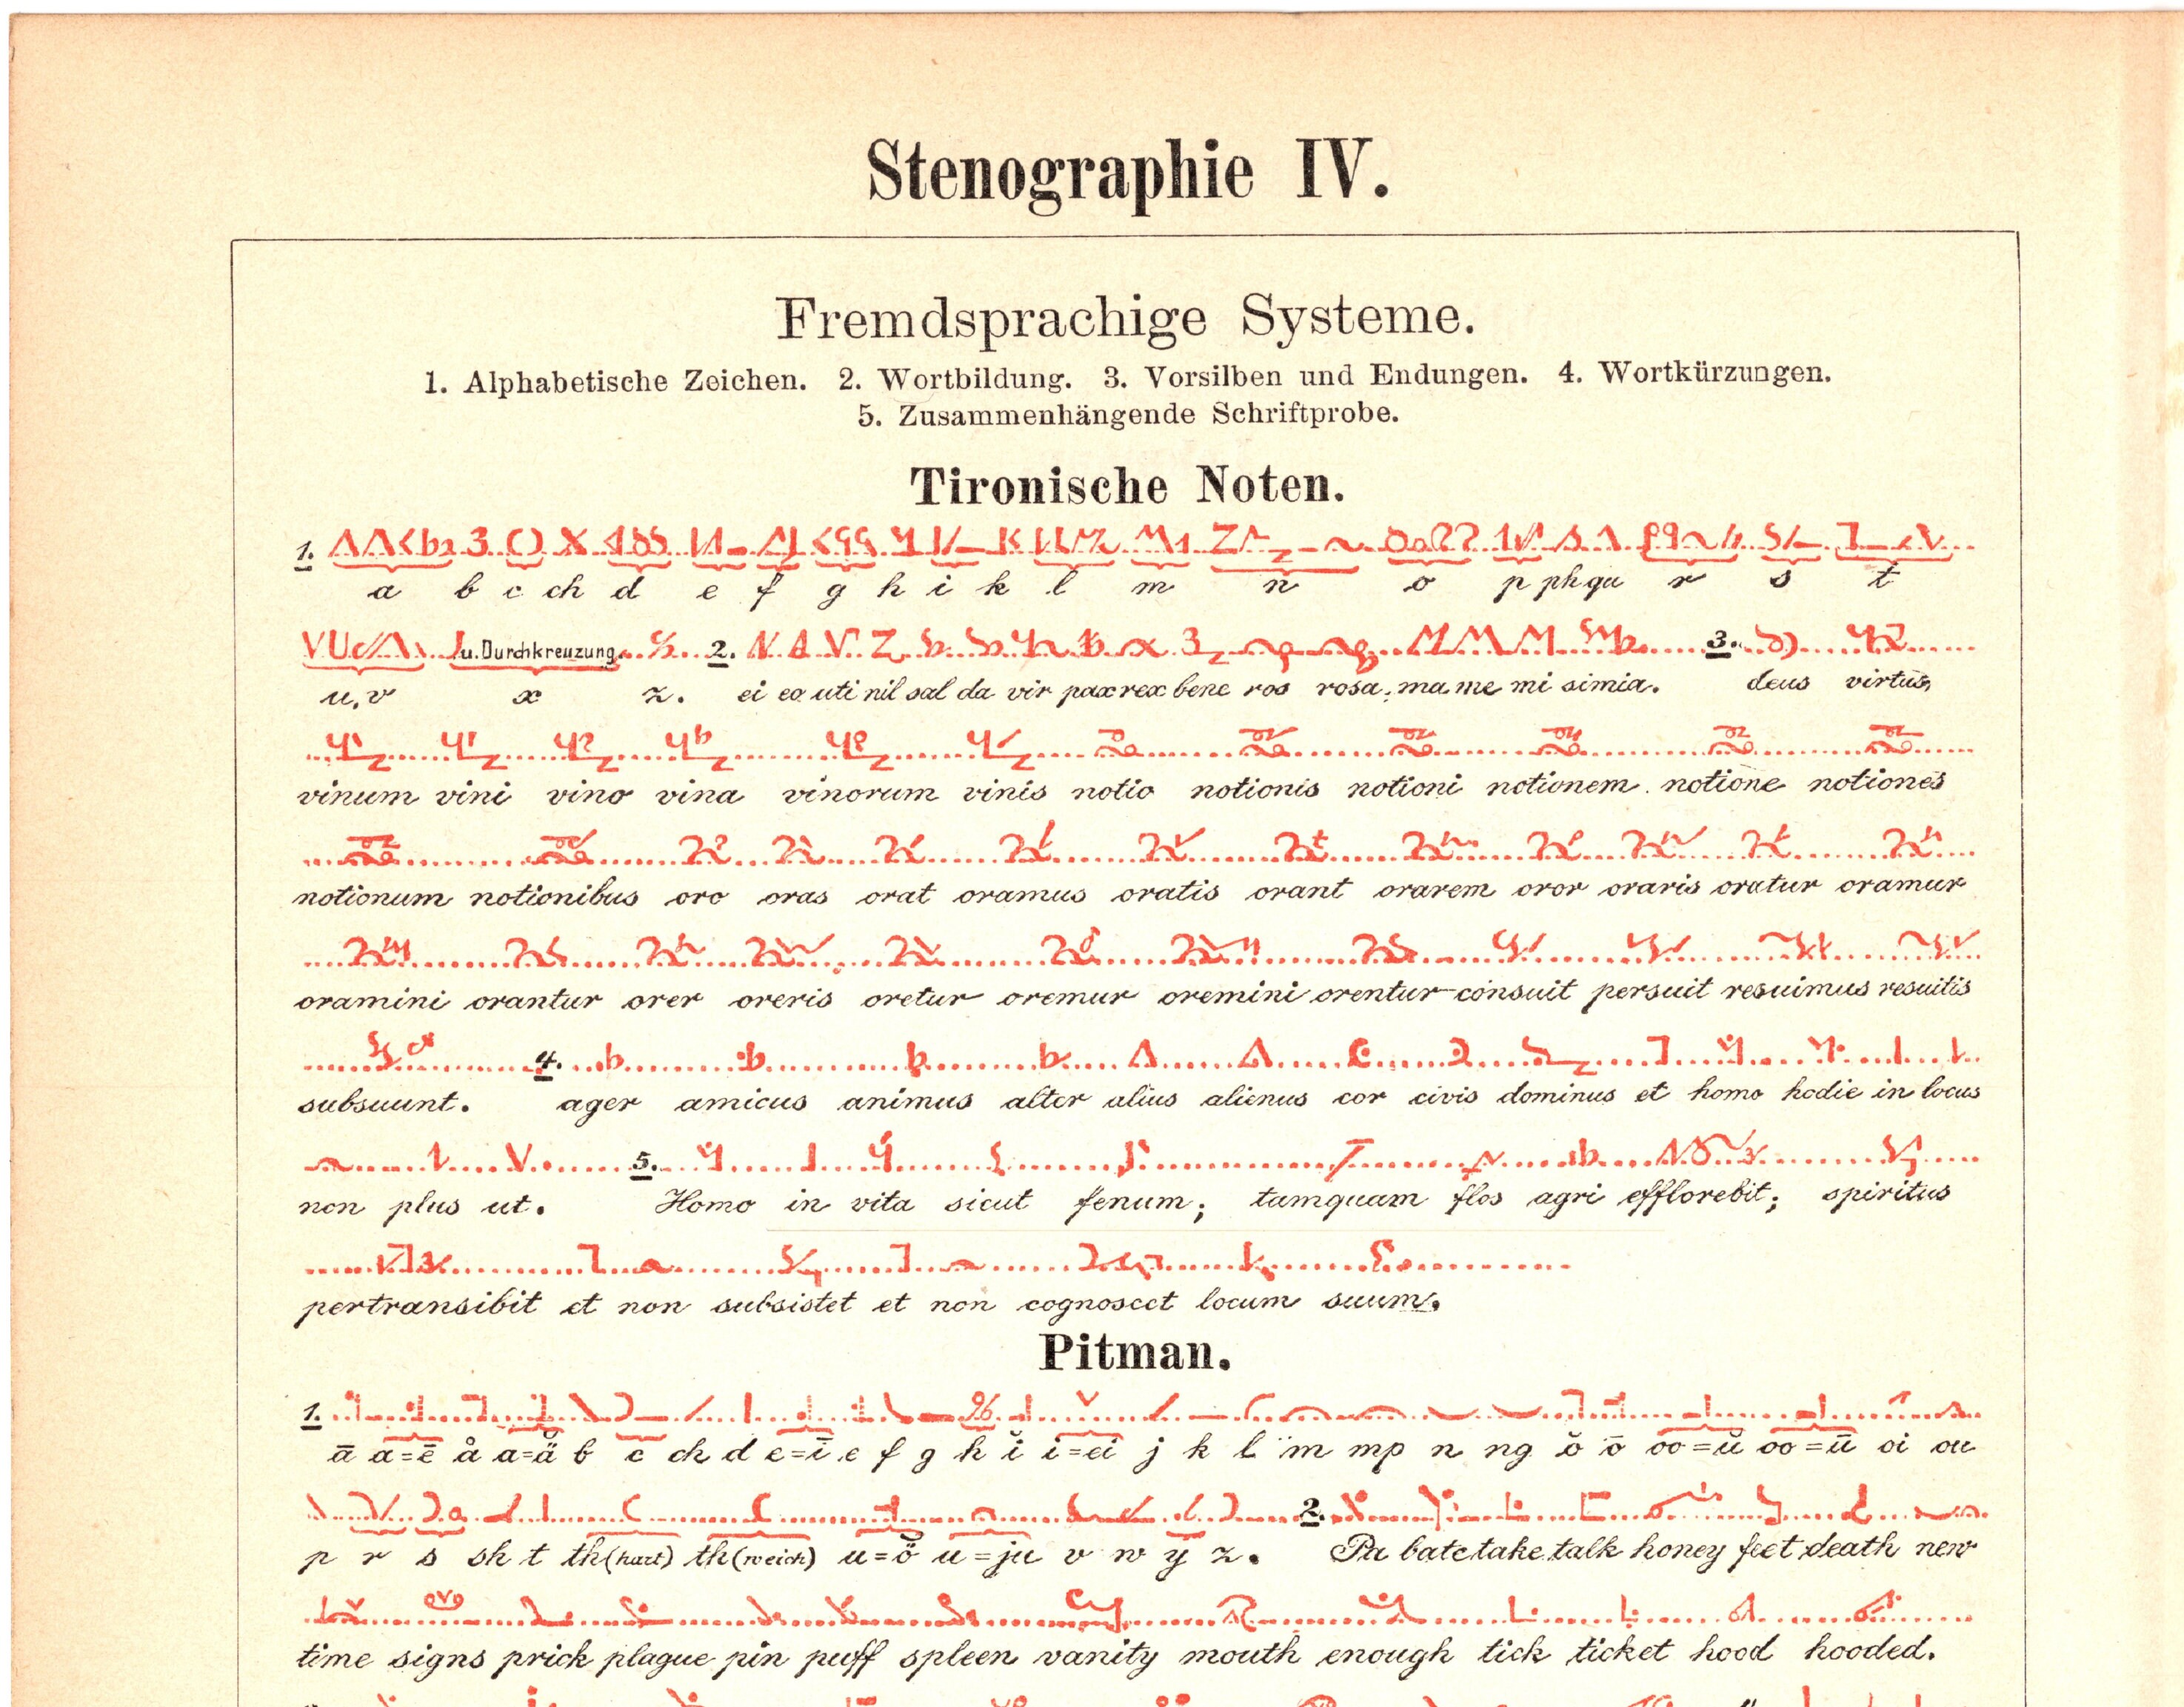 Stenographie IV.
Fremdsprachige Systeme.
1. Alphabetische Zeichen. 2. Wortbildung. 3. Vorsilben und Endungen. 4. Wortkürzungen.
5. Zusammenhängende Schriftprobe.
Tironische Noten.
1.
a b c ch d e f g h i k l m n o p ph qu r s t
u. Durchkreuzung 2. 3.
u, v x z. ei eo uti nil sal da vir pax rex bene ros rosa; ma me mi simia. deus virtus,
vinum vini vino vina vinorum vinis notio notionis notioni notionem notione notiones
notionum notionibus oro oras orat oramus oratis orant orarem oror oraris oratur oramur
oramini orantur orer oreris oretur oremur oremini orentur consuit persuit resuimus resuitis
4.
subsuunt. ager amicus animus alter alius alienus cor civis dominus et homo hodie in locus
5.
non plus ut. Homo in vita sicut fenum; tamquam flos agri efflorebit; spiritus
pertransibit et non subsistet et non cognoscet locum suum.
Pitman.
1.
ā a=ē å a=ä b c ch d e=ī e f g h ĭ i=ei j k l m mp n ng ŏ ō oo=ŭ oo=ū oi ou
2.
p r s sh t th (hart) th (weich) u=ŏ̈ u=ju v w y z. Pa bate take talk honey feet death new
time signs prick plague pin puff spleen vanity mouth enough tick ticket hood hooded.